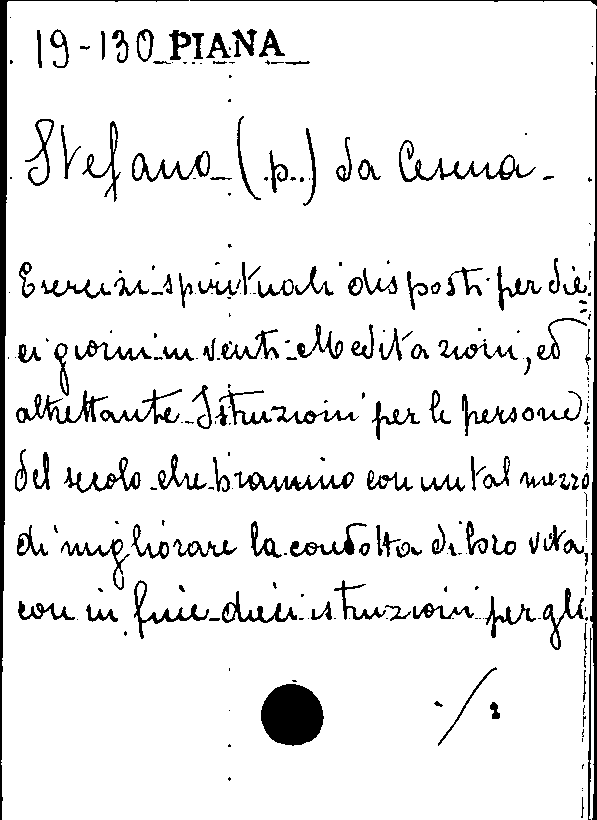 19-130 PIANA
Stefano (p.) da Cesena -
Esercizi spirituali disposti per die=
ci giorni in venti Meditazioni, ed
altrettante Istruzioni per le persone
del secolo che bramino con un tal mezzo
di migliorare la condotta di loro vita,
con in fine dieci istruzioni per gli
./2